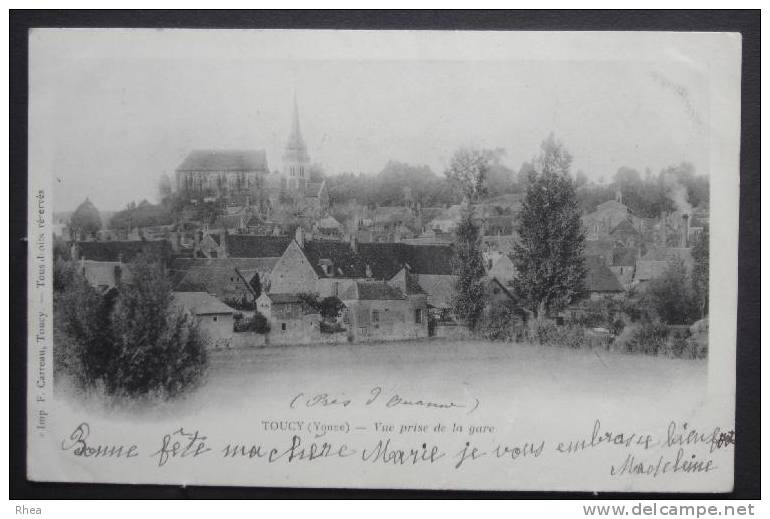 Imp. F. Carreau, Toucy. — Tous droits réservés
(Près d'Ouanne)
TOUCY (Yonne) — Vue prise de la gare
Bonne fête ma chère Marie je vous embrasse bien fort
Madeleine
Rhea
http://www.delcampe.net